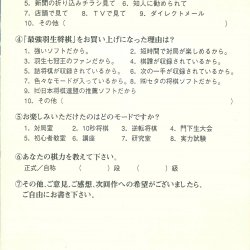 5. 新聞の折り込みチラシ見て　6. 知人に勧められて
7. 店頭で見て　8. TVで見て　9. ダイレクトメール
10. その他（
④「最強羽生将棋」をお買い上げになった理由は?
1. 強いソフトだから。　2. 短時間で対局が楽しめるから。
3. 羽生七冠王のファンだから。　4. 棋譜が収録されているから。
5. 詰将棋が収録されているから。　6. 次の一手が収録されているから。
7. 色々なモードが入っているから。　8. ㈱セタの将棋ソフトだから。
9. ㈳日本将棋連盟の推薦ソフトだから
10. その他（　）
⑤お楽しみいただけたのはどのモードですか?
1. 対局室　2. 10秒将棋　3. 逆転将棋　4. 門下生大会
5. 初心者教室　6. 講座　7. 研究室　8. 実力試験
⑥あなたの棋力を教えて下さい。
正式/自称　（　）段　（　）級
⑦その他、ご意見、ご感想、次回作への希望がございましたら、
ご自由にお書き下さい。